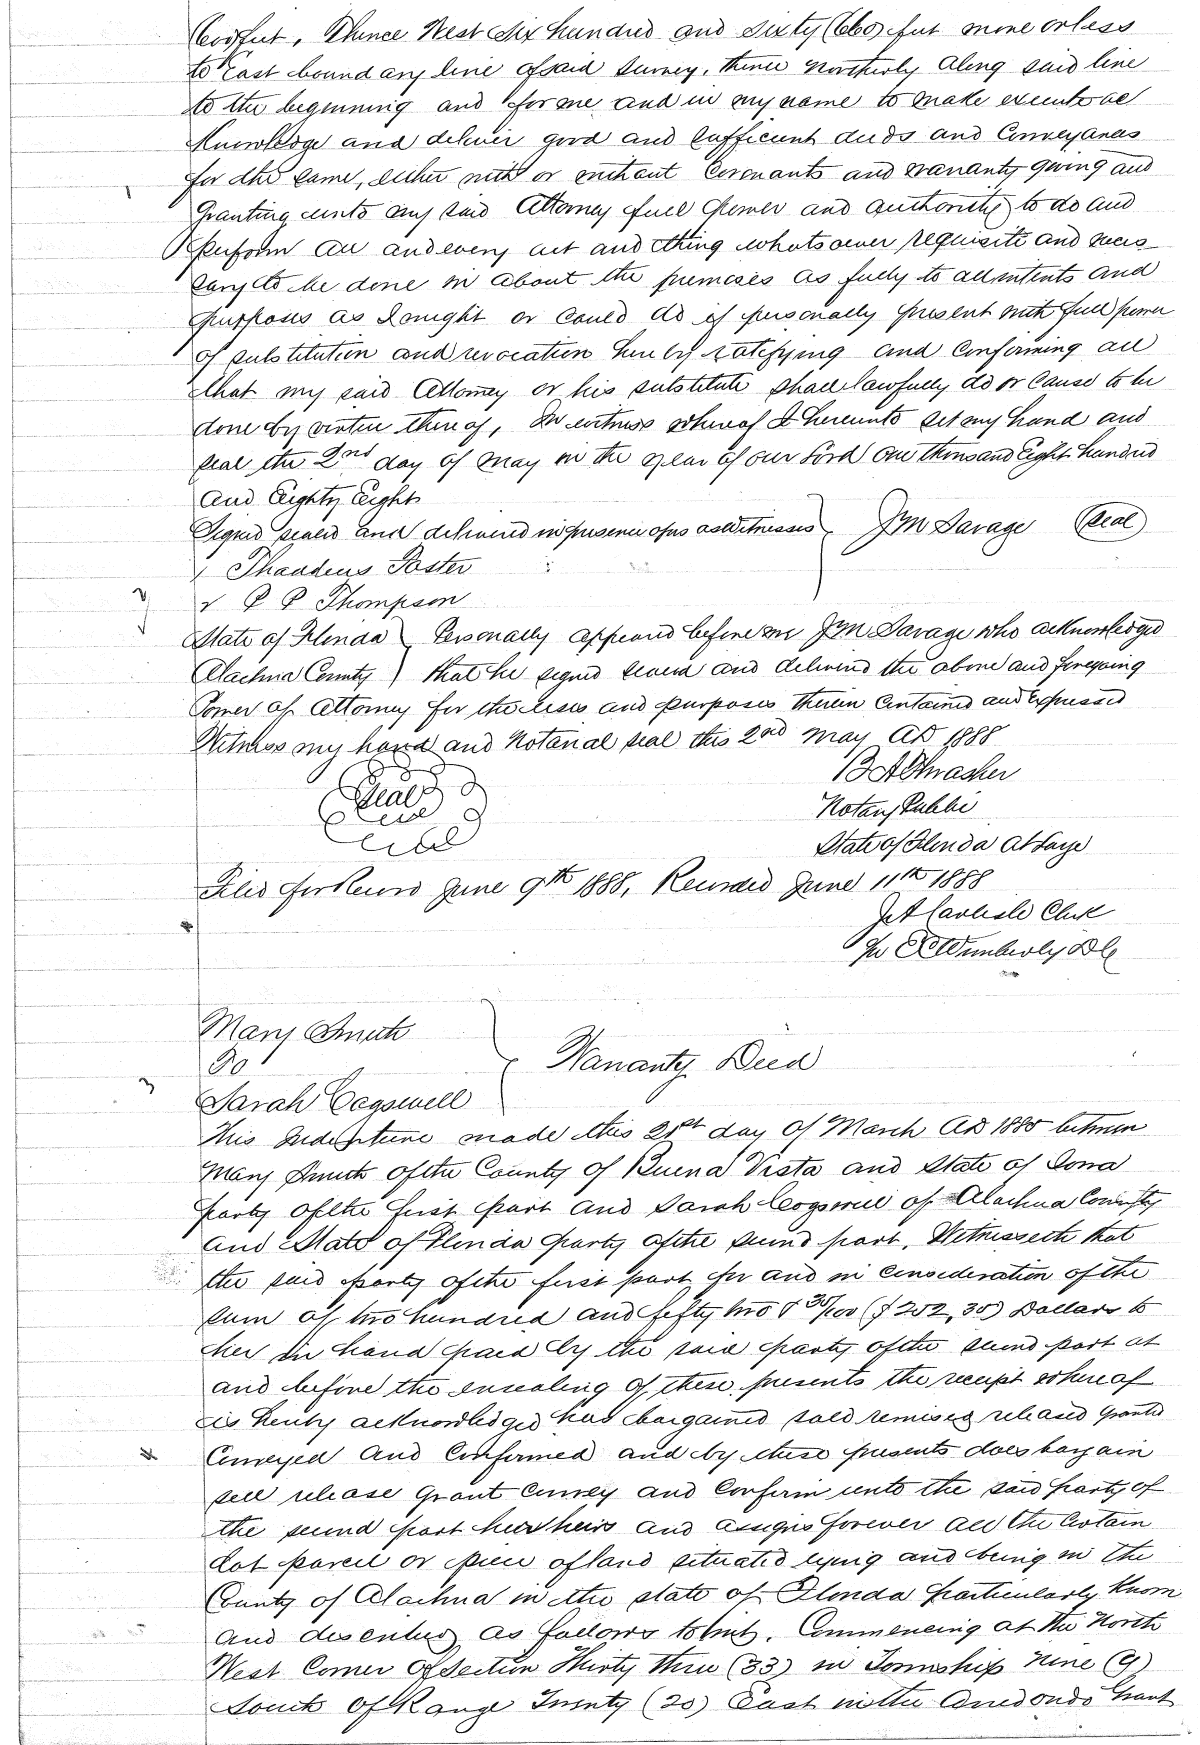 feet, Thence West Six hundred and Sixty (660) feet more or less
to East boundary line of said Survey, thence Northerly along said line
to the beginning and for me and in my name to make execute ac
knowledge and deliver good and Sufficient deeds and Conveyances
for the same, either with or without Covenants and warranty giving and
Granting unto my said Attorney full power and authority to do and
perform all and every act and thing whatsoever requisite and neces
sary to be done in about the premises as fully to all intents and
purposes as I might or could do if personally present with full power
of substitution and revocation hereby ratifying and Confirming all
that my said Attorney or his substitute shall lawfully do or cause to be
done by virtue thereof, In witness whereof I hereunto set my hand and
seal the 2nd day of May in the year of our Lord One thousand Eight hundred
and Eighty Eight
Signed sealed and delivered in presence of us as witnesses } J M Savage (Seal)
Thaddeus Foster
P P Thompson
State of Florida } Personally appeared before me J M Savage who acknowledged
Alachua County } that he signed sealed and delivered the above and foregoing
Power of Attorney for the uses and purposes therein Contained and Expressed
Witness my hand and Notarial seal this 2nd May AD 1888
B A Thrasher
Seal
Notary Public
State of Florida at Large
Filed for Record June 9th 1888, Recorded June 11th 1888
J A Carlisle Clerk
Per Wimberly D C
Mary Smith
To } Warranty Deed
Sarah Cogswell
This Indenture made this 21st day of March AD 1885 between
Mary Smith of the County of Buena Vista and State of Iowa
party of the first part and Sarah Cogswell of Alachua County
and State of Florida party of the second part. Witnesseth that
the said party of the first part for and in consideration of the
sum of two hundred and fifty two & 30/100 ($252,30) Dollars to
her in hand paid by the said party of the second part at
and before the ensealing of these presents the receipt whereof
is hereby acknowledged has bargained sold remised released granted
Conveyed and Confirmed and by these presents does bargain
sell release Grant Convey and Confirm unto the said party of
the second part her heirs and assigns forever all the Certain
Lot parcel or piece of land situated lying and being in the
County of Alachua in the state of Florida particularly known
and described as follows to wit. Commencing at the North
West Corner of Section Thirty three (33) in Township Nine (9)
South of Range Twenty (20) East in the Arredondo Grant